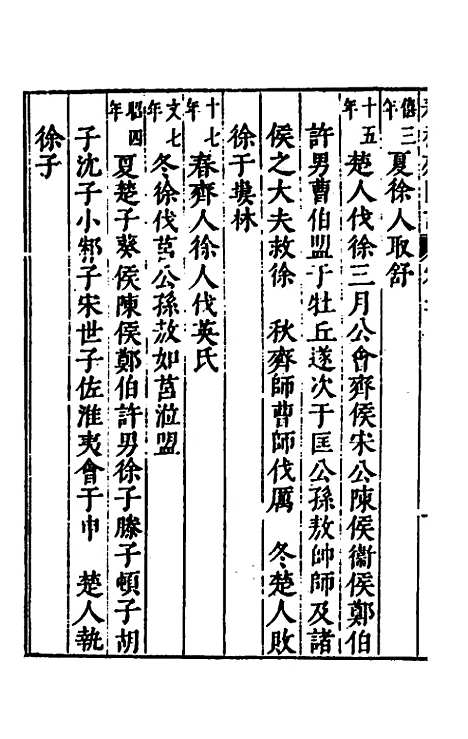 僖三年夏徐人取舒
十五年楚人伐徐三月公會齊侯宋公陳侯衞侯鄭伯
許男曹伯盟于牡丘遂次于匡公孫敖帥師及諸
侯之大夫救徐　秋齊師曹師伐厲　冬楚人敗
徐于婁林
十七年春齊人徐人伐英氏
文七年冬徐伐莒公孫敖如莒涖盟
昭四年夏楚子蔡侯陳侯鄭伯許男徐子滕子頓子胡
子沈子小邾子宋世子佐淮夷會于申　楚人執
徐子